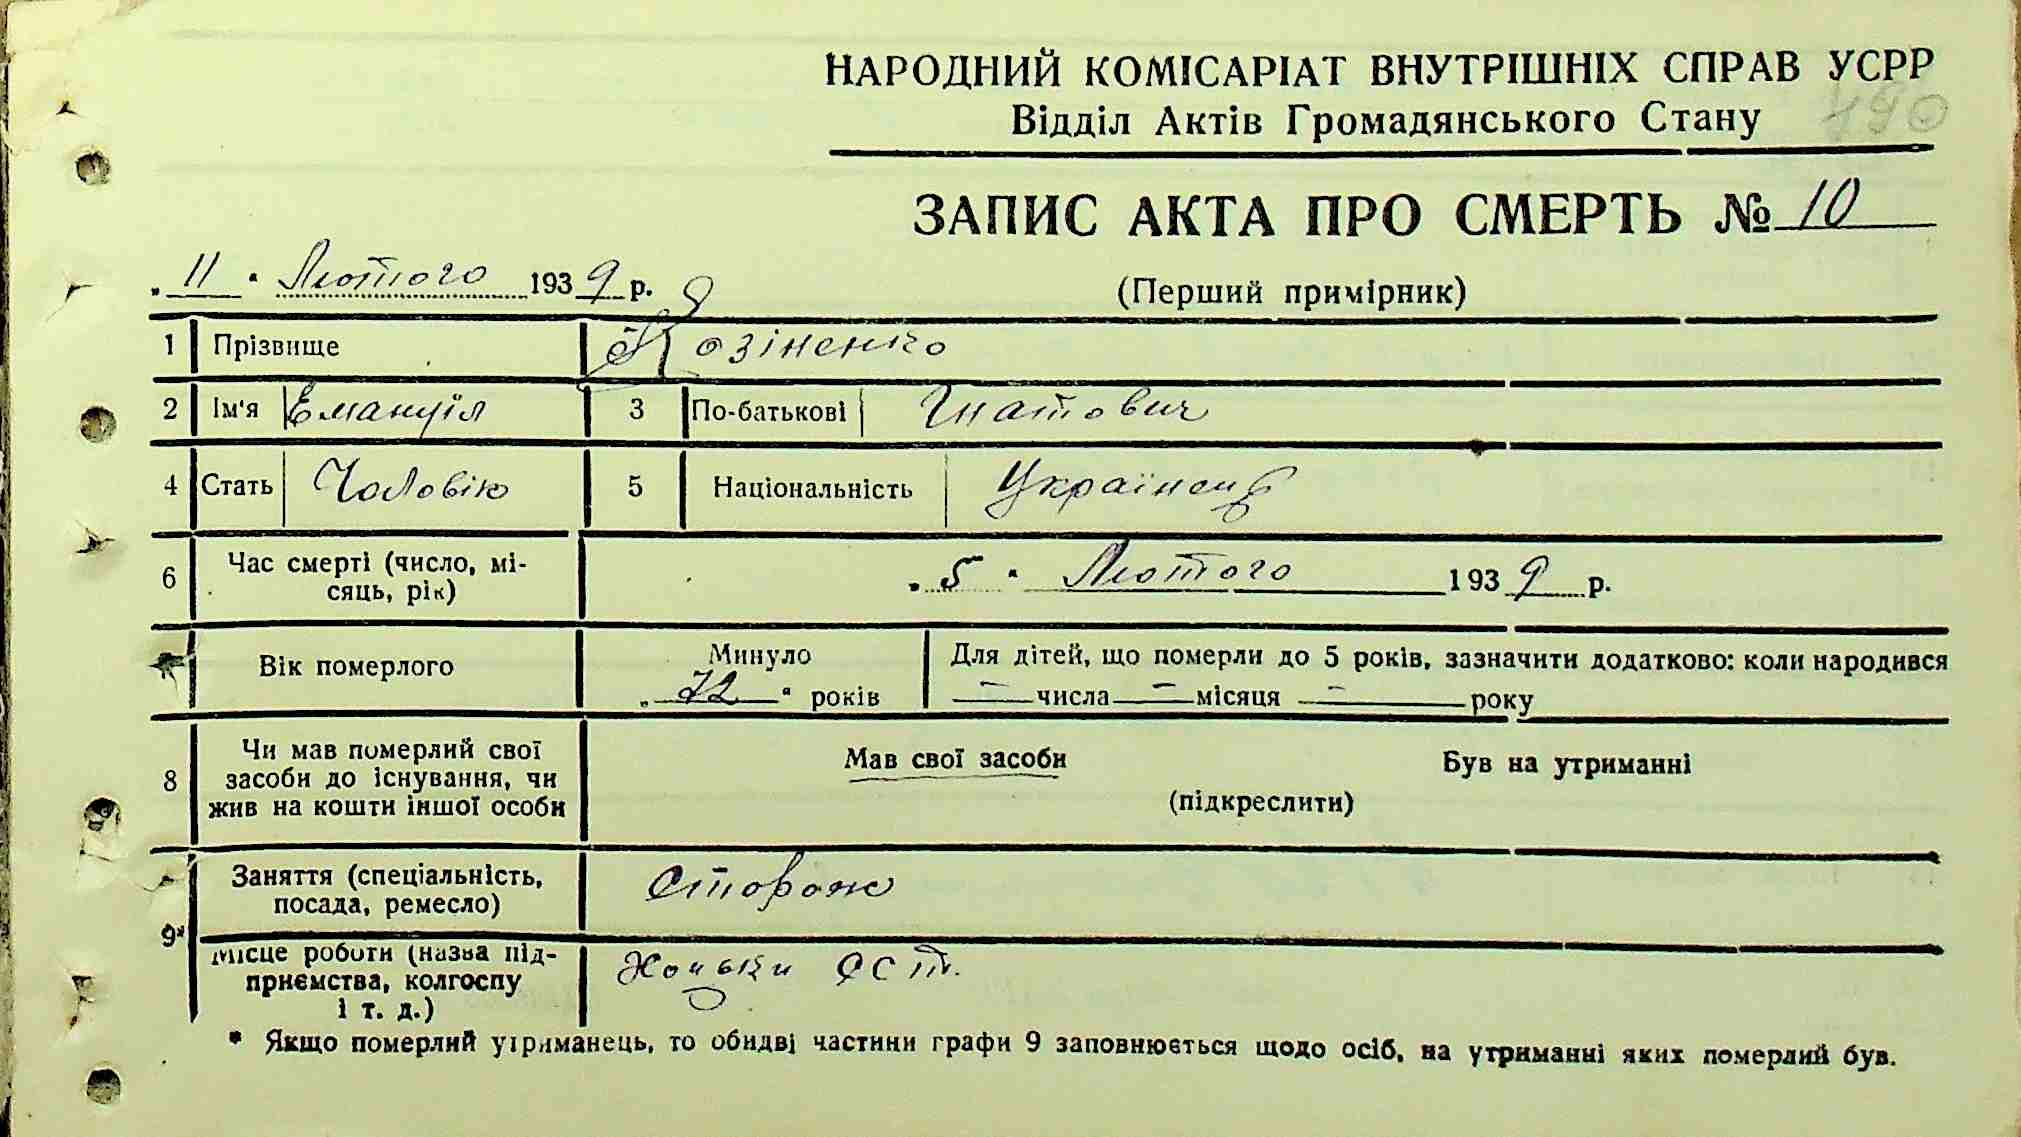 НАРОДНИЙ КОМІСАРІАТ ВНУТРІШНІХ СПРАВ УСРР
Відділ Актів Громадянського Стану
490
ЗАПИС АКТА ПРО СМЕРТЬ № 10
„11" Лютого 1939 р.
(Перший примірник)
1 Прізвище Козіненко
2 Ім'я Емануїл 3 По-батькові Гнатович
4 Стать Чоловік 5 Національність Українець
6 Час смерті (число, мі-
сяць, рік) „5" Лютого 1939 р.
Вік померлого Минуло Для дітей, що померли до 5 років, зазначити додатково: коли народився
„72" років — числа — місяця — року
8 Чи мав померлий свої
засоби до існування, чи
жив на кошти іншої особи
Мав свої засоби Був на утриманні
(підкреслити)
9* Заняття (спеціальність,
посада, ремесло) Сторож
Місце роботи (назва під-
приємства, колгоспу
і т. д.)
* Якщо померлий утриманець, то обидві частини графи 9 заповнюється щодо осіб, на утриманні яких померлий був.